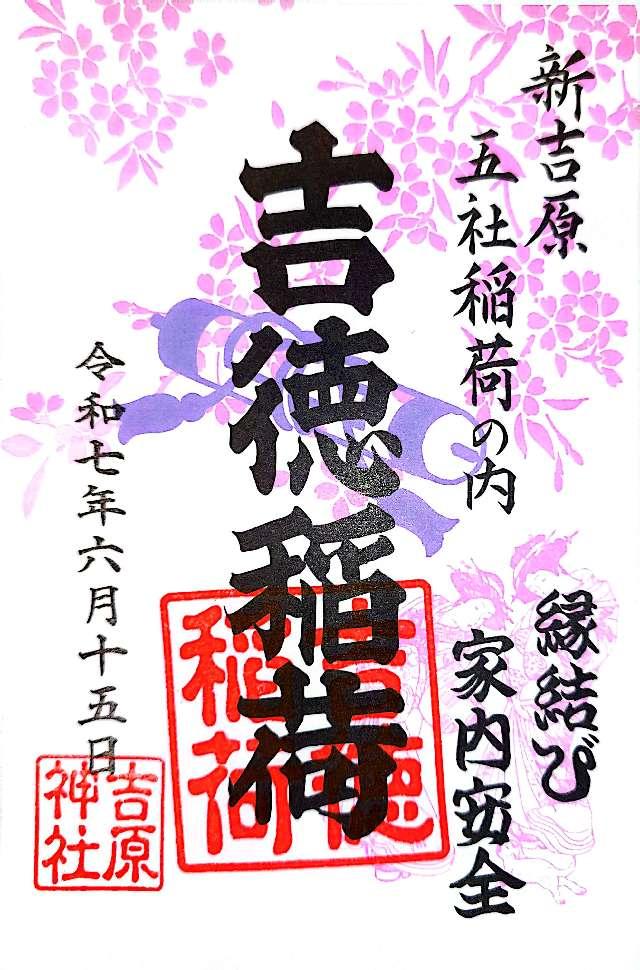 新吉原
五社稲荷の内
縁結び
家内安全
吉徳稲荷
吉徳
稲荷
令和七年六月十五日
吉原
神社